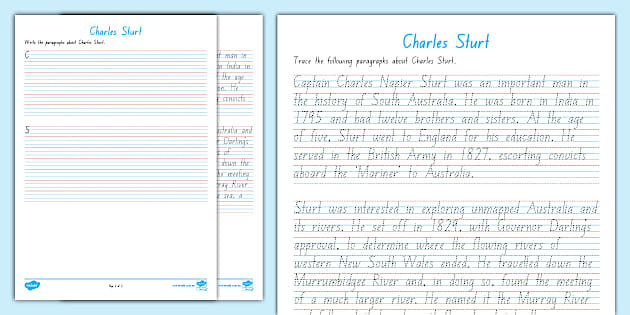 Charles Sturt
Write the paragraphs about Charles Sturt.
C
S
t man in
in India in
t the age
n. He
convicts
ustralia and
Darlings
of
down the
the meeting
rray River
e sea, a
Charles Sturt
Trace the following paragraphs about Charles Sturt.
Captain Charles Napier Sturt was an important man in
the history of South Australia. He was born in India in
1795 and had twelve brothers and sisters. At the age
of five, Sturt went to England for his education. He
served in the British Army in 1827, escorting convicts
aboard the 'Mariner' to Australia.
Sturt was interested in exploring unmapped Australia and
its rivers. He set off in 1829, with Governor Darlings
approval, to determine where the flowing rivers of
western New South Wales ended. He travelled down the
Murrumbidgee River and, in doing so, found the meeting
of a much larger river. He named it the Murray River